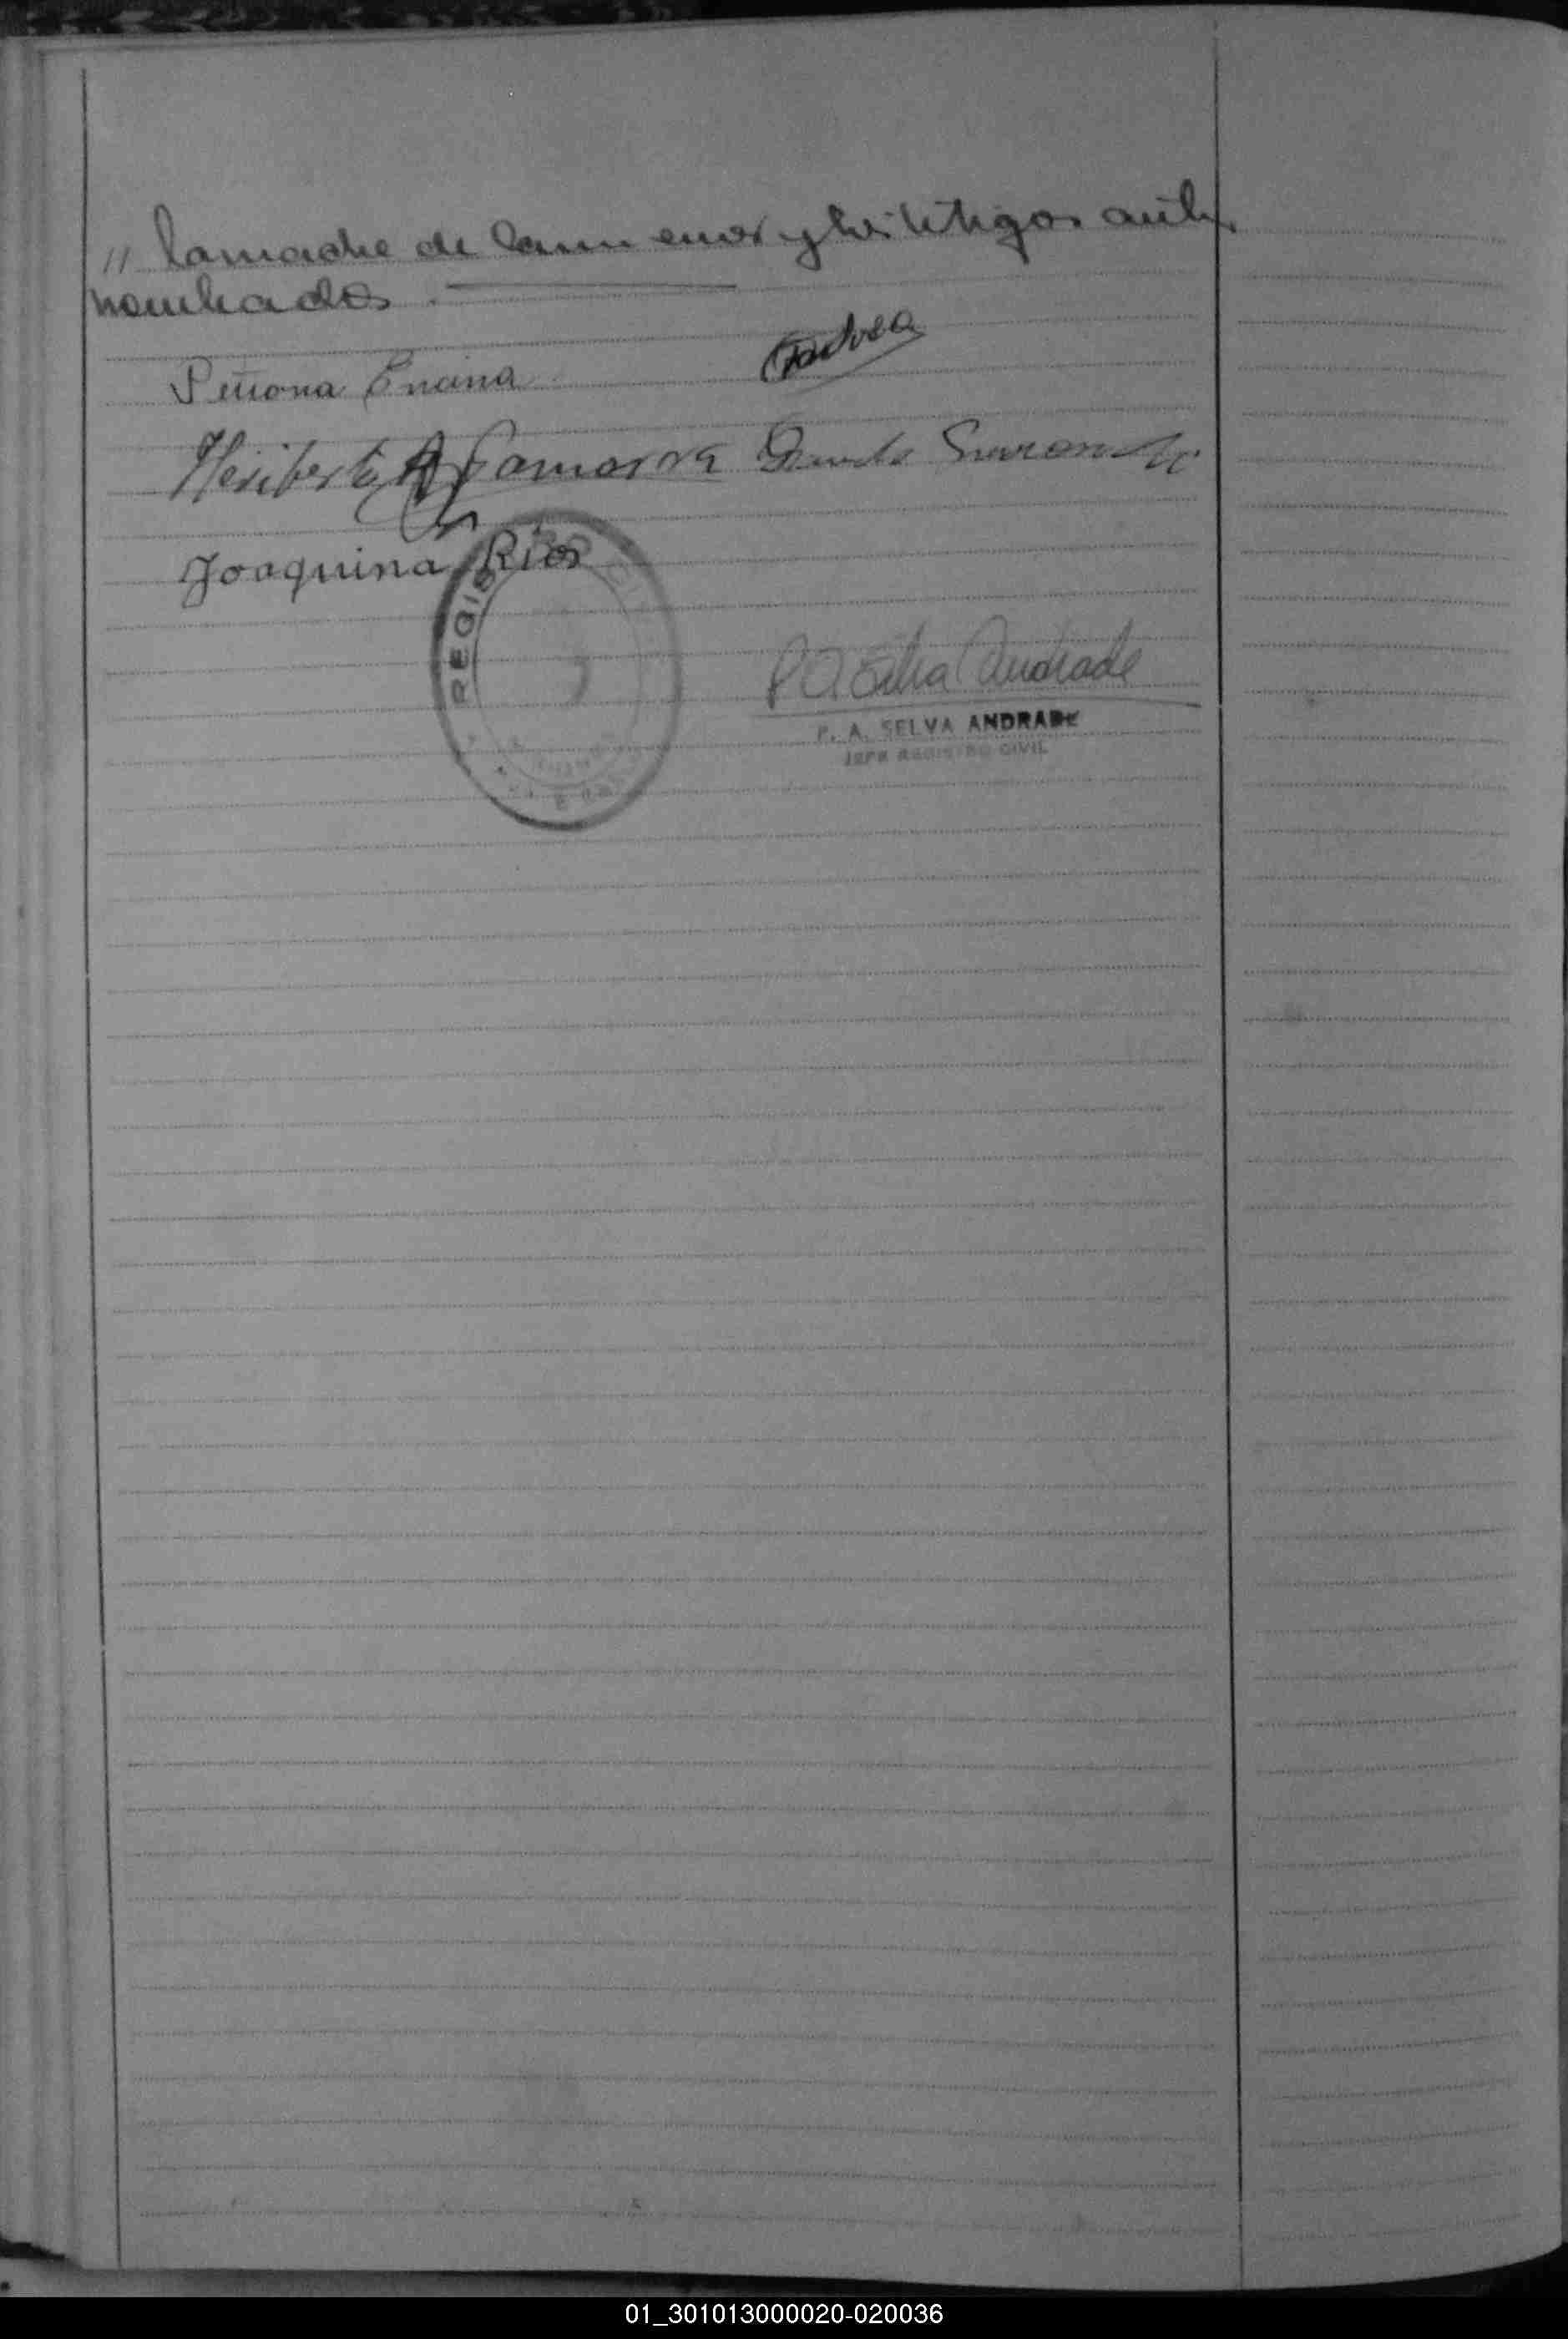 // la madre de la menor y los testigos ante
nombrados.
Petrona Encina
Heriberto A Gamarra
Joaquina Rios
REGISTRO CIVIL
P. A. Selva Andrade
P. A. SELVA ANDRADE
JEFE REGISTRO CIVIL
01_301013000020-020036